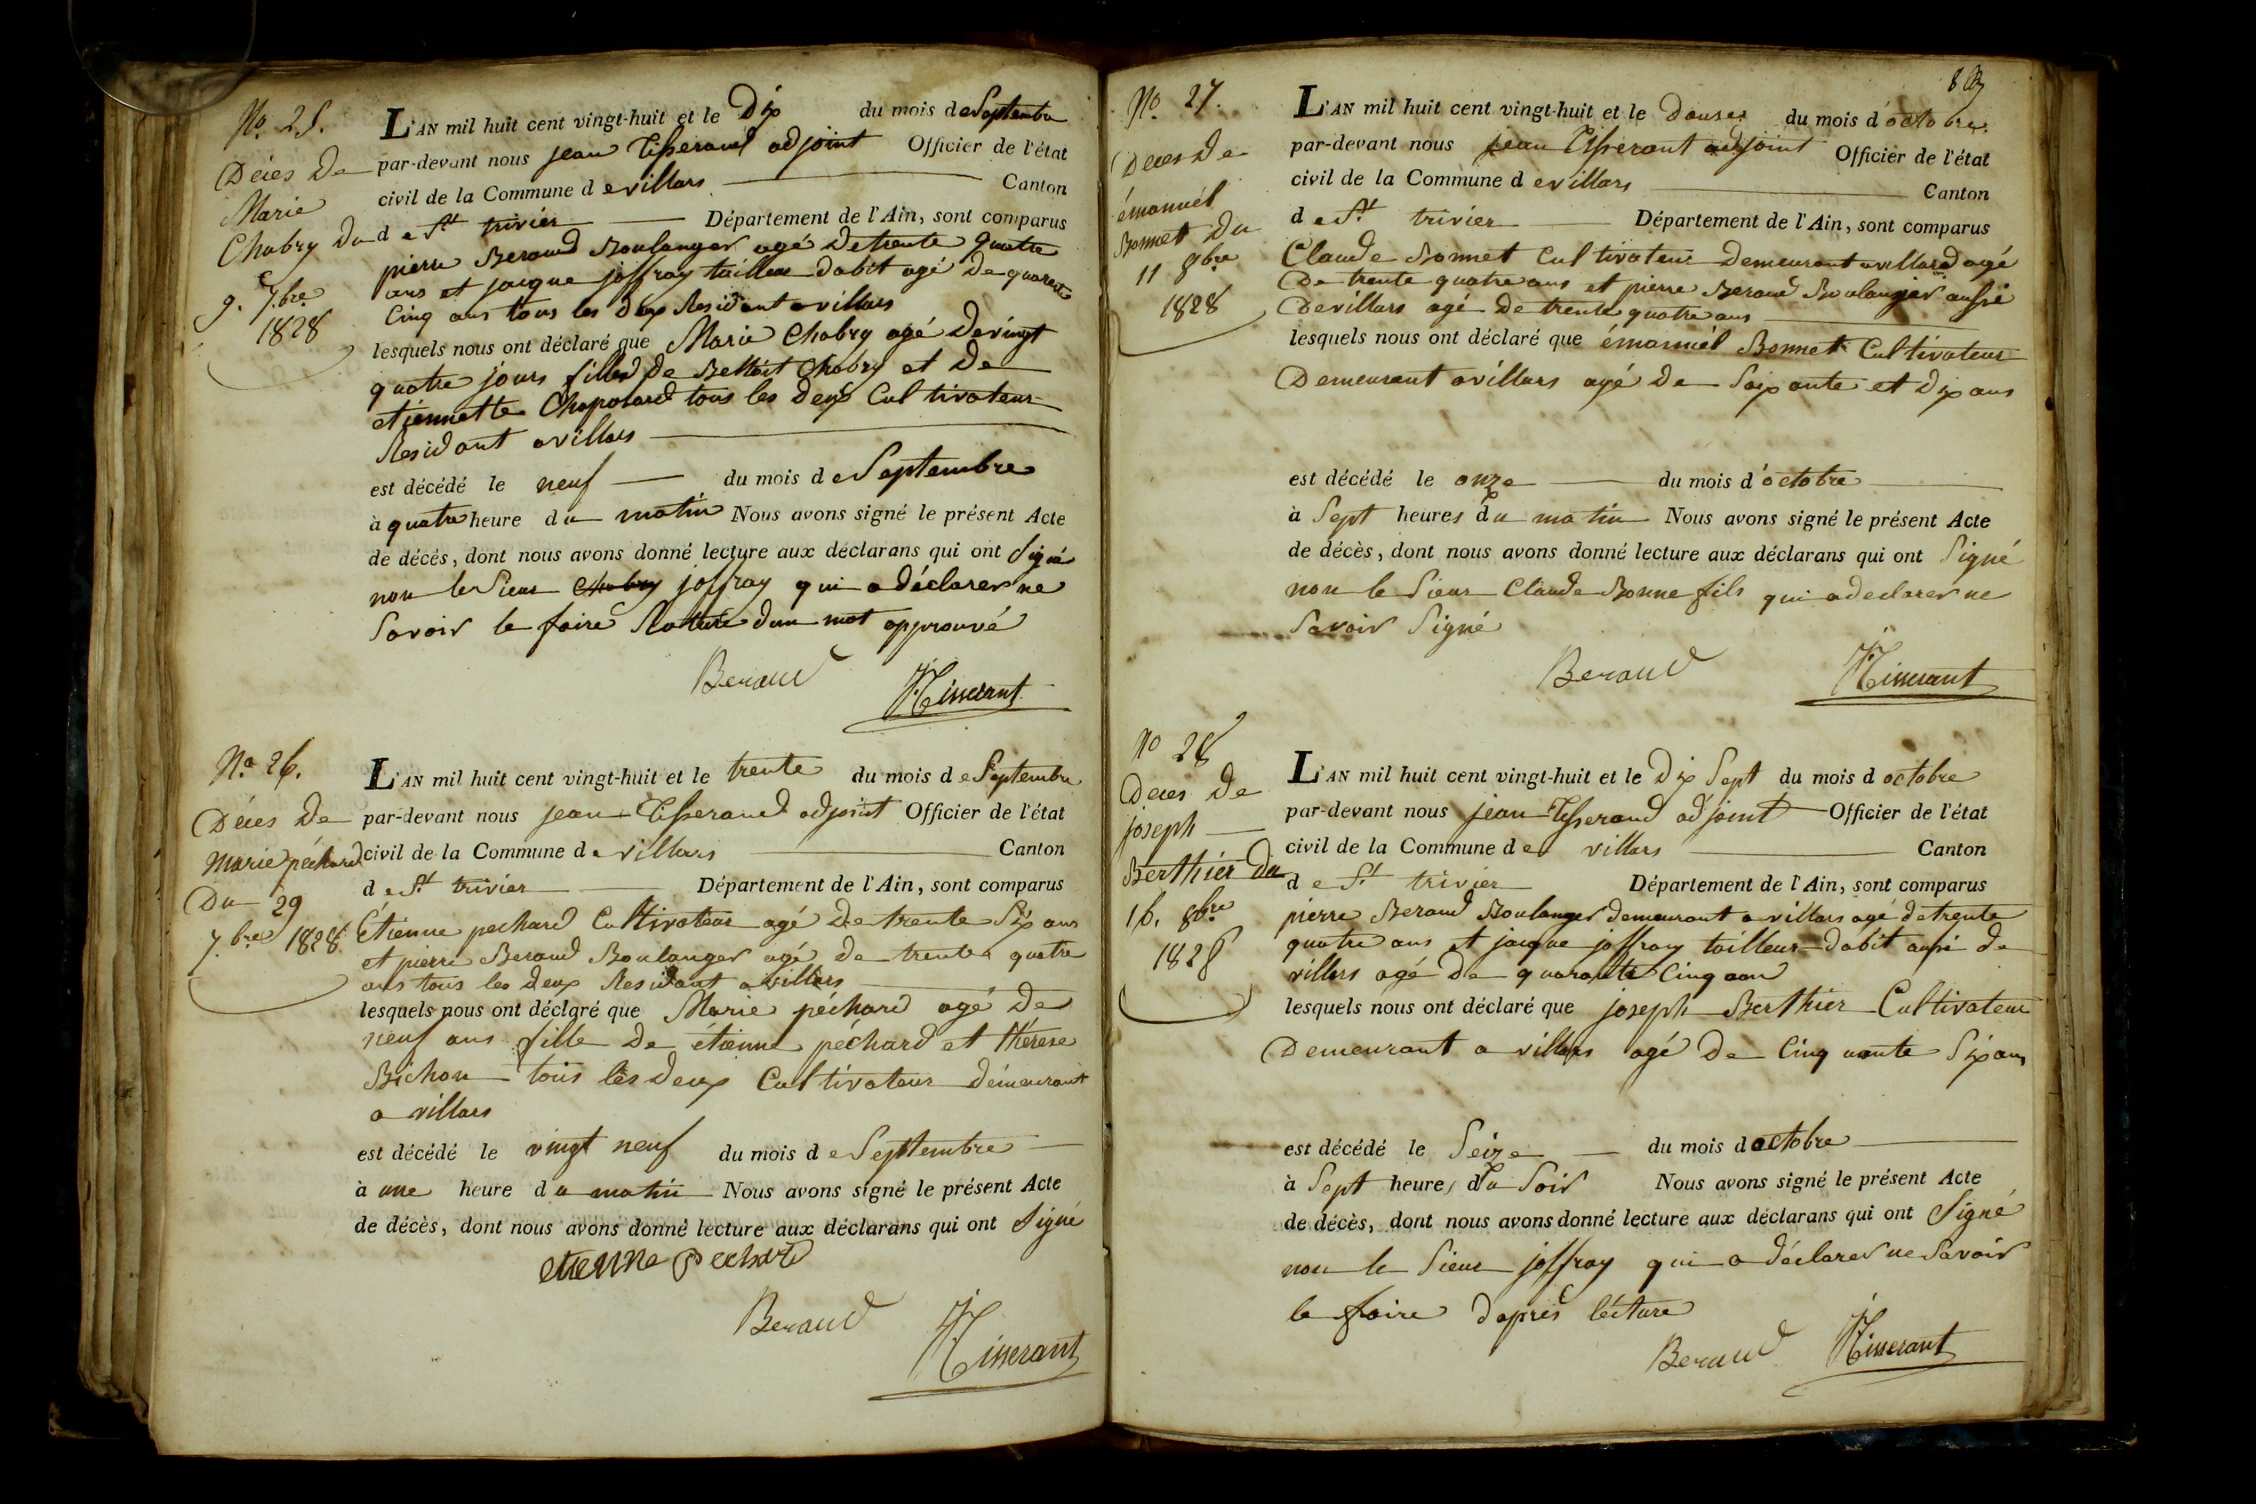 No. 25.
Décés De
Marie
Chabry Du
9. 7.bre
1828
L'AN mil huit cent vingt-huit et le Dix du mois de Septembre
par-devant nous jean Tisserand adjoint Officier de l'état
civil de la Commune de villars Canton
de St trivier Département de l'Ain, sont comparus
pierre Beraud Boulanger agé de trente quatre
ans et jacque joffray tailleur dabit agé de quarente
Cinq ans tous les deux Residant a villars
lesquels nous ont déclaré que Marie Chabry agé de vingt
quatre jours fille de Benoit Chabry et De
etiennette Chapolard tous les deux Cultivateur
Residant a villars
est décédé le neuf du mois de Septembre
à quatre heure du matin Nous avons signé le présent Acte
de décès, dont nous avons donné lecture aux déclarans qui ont Signé
non le Sieur Chabry joffray qui a déclarer ne
Savoir le faire Rature dun mot approuvé
Beraud JTisserant
No. 26.
Décés De
Marie péchard
Du 29
7.bre 1828
L'AN mil huit cent vingt-huit et le trente du mois de Septembre
par-devant nous jean Tisserand adjoint Officier de l'état
civil de la Commune de villars Canton
de St trivier Département de l'Ain, sont comparus
Étienne pechard Cultivateur agé De trente Six ans
et pierre Beraud Boulanger agé de trente quatre
ans tous les deux Residant a villars
lesquels nous ont déclaré que Marie péchard agé De
neuf ans fille De étienne péchard et thérese
Bichon tous les deux Cultivateur demeurant
a villars
est décédé le vingt neuf du mois de Septembre
à une heure du matin Nous avons signé le présent Acte
de décès, dont nous avons donné lecture aux déclarans qui ont Signé
etienne pechard
Beraud JTisserant
No 27.
Déces De
émanuél
Bonnet Du
11 8bre
1828
L'AN mil huit cent vingt-huit et le Douses du mois d'octobre
par-devant nous jean Tisserant adjoint Officier de l'état
civil de la Commune de villars Canton
de St trivier Département de l'Ain, sont comparus
Claude Bonnet Cultivateur Demeurant a villars agé
De trente quatre ans et pierre Beraud Boulanger aussi
De villars agé de trente quatre ans
lesquels nous ont déclaré que émanuél Bonnet Cultivateur
Demeurant a villars agé de Soixante et Dix ans
est décédé le onze du mois d'octobre
à Sept heures du matin Nous avons signé le présent Acte
de décès, dont nous avons donné lecture aux déclarans qui ont Signé
non le Sieur Claude Bonne fils qui a declarer ne
Savoir Signé
Beraud JTisserant
No 28
Deces De
joseph
Berthier Du
16. 8bre
1828
L'AN mil huit cent vingt-huit et le Dix Sept du mois d octobre
par-devant nous jean Tisserand adjoint Officier de l'état
civil de la Commune de villars Canton
de St trivier Département de l'Ain, sont comparus
pierre Beraud Boulanger demeurant a villars agé de trente
quatre ans et jacque joffray tailleur dabit aussi de
villars agé de quarante Cinq ans
lesquels nous ont déclaré que joseph Berthier Cultivateur
Demeurant a villars agé De Cinquante Six ans
est décédé le Seize du mois doctobre
à Sept heures du Soir Nous avons signé le présent Acte
de décès, dont nous avons donné lecture aux déclarans qui ont Signé
non le Sieur joffray qui a déclarer ne Savoir
le faire daprés lécture
Beraud JTisserant